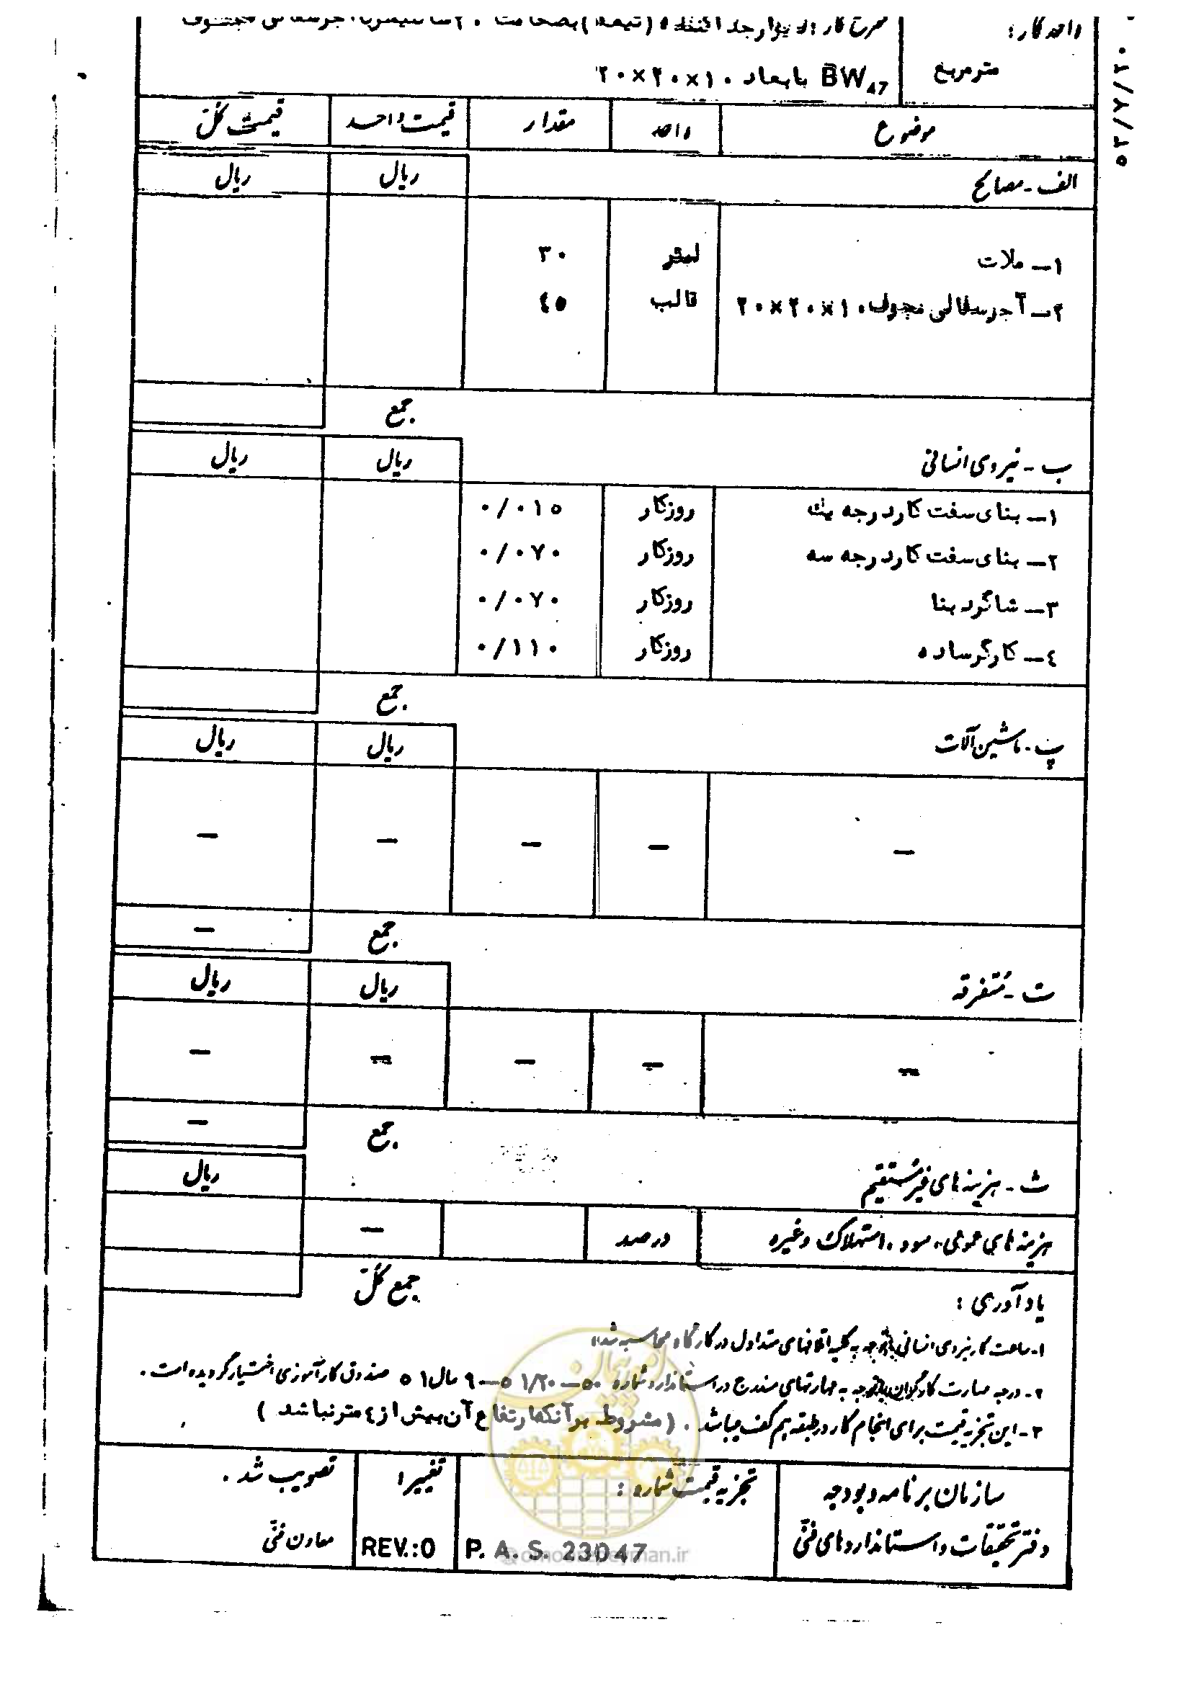 شرح کار: دیوار جداکننده (تیغه) بضخامت ۲۰ سانتیمتر با آجر سفالی مجوف
BW۸۷ بابعاد ۱۰×۲۰×۲۰
واحد کار:
مترمربع
۵۳/۷/۳۰
موضوع واحد مقدار قیمت واحد قیمت کل
الف - مصالح ریال ریال
۱- ملات لیتر ۳۰
۲- آجر سفالی مجوف ۱۰×۲۰×۲۰ قالب ٤۵
جمع
ب - نیروی انسانی ریال ریال
۱- بنای سفت کار درجه یک روزکار ۰/۰۱۵
۲- بنای سفت کار درجه سه روزکار ۰/۰۷۰
۳- شاگرد بنا روزکار ۰/۰۷۰
٤- کارگر ساده روزکار ۰/۱۱۰
جمع
پ - ماشین آلات ریال ریال
— — — — —
جمع —
ت - متفرقه ریال ریال
— — — — —
جمع —
ث - هزینه های غیر مستقیم ریال
هزینه های عمومی، سود، استهلاک وغیره درصد —
جمع کل
یادآوری:
۱- ساعت کار نیروی انسانی باتوجه به کلیه اتلافهای متداول در کارگاه محاسبه شده
۲- درجه مهارت کارگران باتوجه به مهارتهای مندرج در استاندارد شماره ۵۰-۵۱/۲۰-۹ سال ۵۱ صندوق کارآموزی اختیار گردیده است.
۳- این تجزیه قیمت برای انجام کار در طبقه هم کف میباشد. (مشروط بر آنکه ارتفاع آن بیش از ٤ متر نباشد)
سازمان برنامه و بودجه
دفتر تحقیقات و استانداردهای فنی
تجزیه قیمت شماره:
P. A. S. 23047
تغییرا
REV.:0
تصویب شد.
معاون فنی
@omoorepeyman.ir
امور پیمان